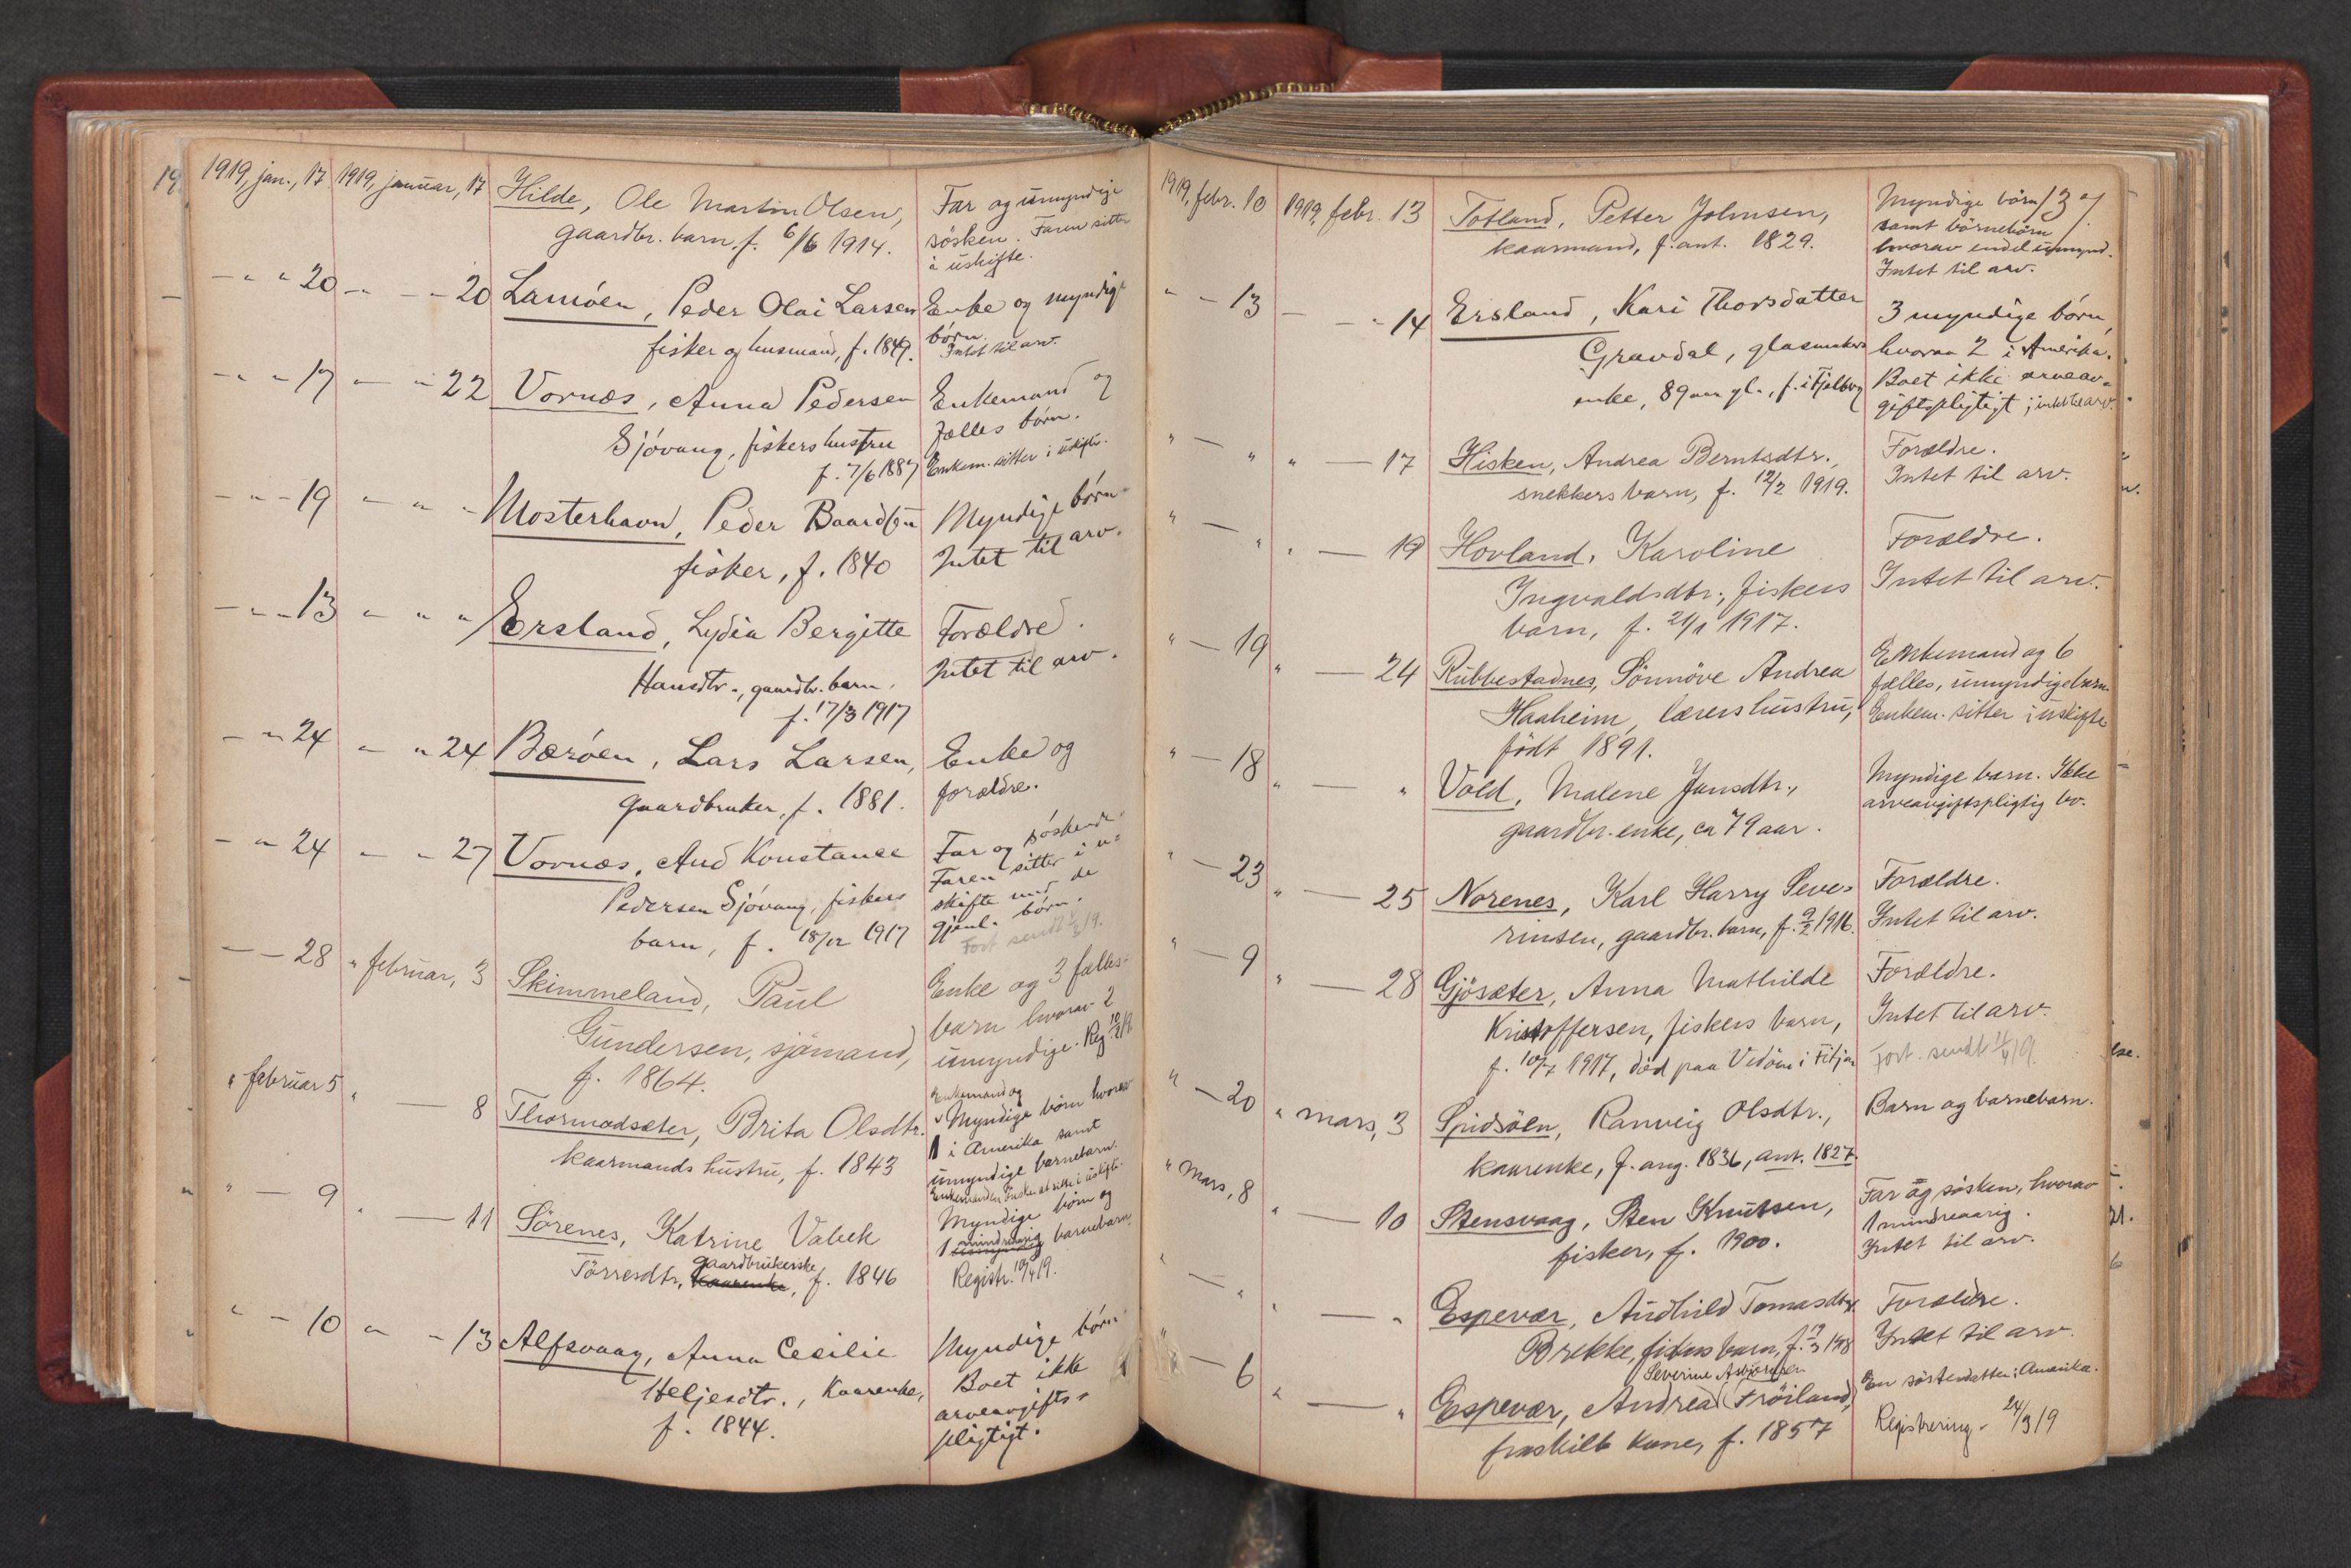 1919, jan., 17 1919, januar, 17 Hilde, Ole Martin Olsen, Far og umyndige
gaardbr. barn f. 6/6 1914. søsken. Faren sitter
i uskifte.
— " " 20 — " — " 20 Lamøen, Peder Olai Larsen Enke og myndige
fisker og husmand, f. 1849. børn.
Intet til arv.
— " " 17 — " 22 Vornæs, Anna Pedersen Enkemand og
Sjøvang, fiskers hustru fælles børn.
f. 7/6 1887 Enkem. sitter i uskifte.
— " — 19 — " " Mosterhavn, Peder Baardsen Myndige børn.
fisker, f. 1840 Intet til arv.
— " — 13 " " " Ersland, Lydia Bergitte Forældre.
Hansdtr., gaardbr. barn, Intet til arv.
f. 17/3 1917
— " 24 — " 24 Bærøen, Lars Larsen, Enke og
gaardbruker, f. 1881. forældre.
— " 24 — " 27 Vornæs, Aud Konstanse Far og søskende.
Pedersen Sjøvang, fiskers Faren sitter i u-
skifte med de
barn, f. 18/12 1917 gjenl. børn.
Fort sendt
— — 28 " februar, 3 Skimmeland, Paul Enke og 3 fælles-
Gundersen, sjømand, barn hvorav 2
f. 1864. umyndige. Reg. 10/2 19
" februar 5 " — 8 Thormodsæter, Brita Olsdtr. Enkemand og
Myndige børn hvorav
kaarmands hustru, f. 1843 1 i Amerika samt
umyndige barnebarn.
Enkemanden ønsker at sitte i uskifte.
" — 9 " — 11 Sörenes, Katrine Valock Myndige børn og
1 mindreaarig barnebarn.
Törresdtr, gaardbrukerske, f. 1846 Registr. 10/4 19.
" — 10 " — 13 Alfsvaag, Anna Cecilie Myndige børn.
Heljesdtr., Kaarenke, Boet ikke
f. 1844. arveavgifts-
pligtigt.
1919, febr. 10 1919, febr. 13 Totland, Petter Johnsen, Myndige børn
kaarmand, f. ant. 1829. samt børnebørn
hvorav endel umynd.
Intet til arv.
" — 13 — — " 14 Ersland, Kari Thorsdatter 3 myndige børn,
Gravdal, hvorav 2 i Amerika.
enke, 89 aar gl., f. i Fjelberg Boet ikke arveav-
giftspligtigt; intet til arv.
" — " " — 17 Hisken, Andrea Berntsdtr., Forældre.
snekkers barn, f. 12/2 1919. Intet til arv.
" — " " — 19 Hovland, Karoline Forældre.
Ingvaldsdtr., fiskers Intet til arv.
barn, f. 21/1 1917.
" — 19 " — 24 Rubbestadnes, Sönnöve Andrea Enkemand og 6
Haaheim, lærers hustru, fælles, umyndige barn.
født 1891. Enkem. sitter i uskifte
" — 18 " — " Vold, Malene Jansdtr., Myndige barn. Ikke
gaardbr. enke, ca 79 aar. arveavgiftspligtig bo.
" — 23 " — 25 Norenes, Karl Harry Seve- Forældre.
rinsen, gaardbr. barn, f. 9/2 1916. Intet til arv.
" — 9 " — 28 Gjøsæter, Anna Mathilde Forældre.
Kristoffersen, fiskers barn, Intet til arv.
f. 10/7 1917, død paa Vedöen i Fitjar Fort. sendt
" — 20 " mars, 3 Spidsöen, Ranveig Olsdtr., Barn og barnebarn.
kaarenke, f. ang. 1836, ant. 1827.
" mars, 8 " — 10 Stensvaag, Sten Knutsen, Far og søsken, hvorav
fisker, f. 1900. 1 mindreaarig.
Intet til arv.
" — " " — " Espevær, Audhild Tomasdtr. Forældre.
Brekke, fiskers barn, f. Intet til arv.
Severine
" — 6 " — " Espevær, Andrea Fröiland, En søsterdatter i Amerika.
fraskilt kone, f. 1857 Registrering. 24/3 19